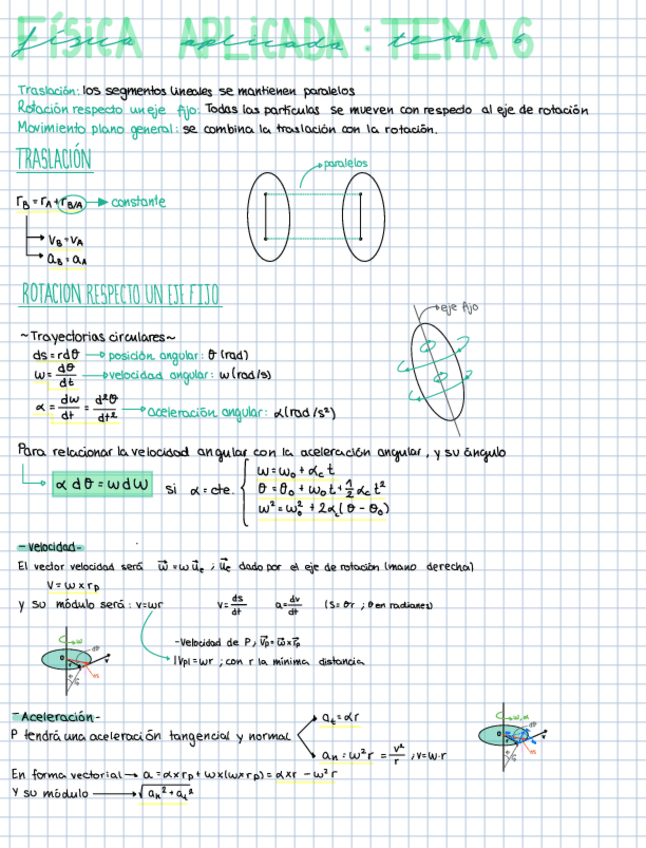 FÍSICA APLICADA: TEMA 6
física aplicada: tema 6
Traslación: los segmentos lineales se mantienen paralelos
Rotación respecto un eje fijo: Todas las partículas se mueven con respecto al eje de rotación
Movimiento plano general: se combina la traslación con la rotación.
TRASLACIÓN
paralelos
r_B = r_A + r_B/A → constante
V_B = V_A
a_B = a_A
ROTACION RESPECTO UN EJE FIJO
eje fijo
~Trayectorias circulares~
ds = rdθ → posición angular: θ (rad)
ω = dθ/dt → velocidad angular: ω (rad/s)
α = dω/dt = d²θ/dt² → aceleración angular: α (rad/s²)
Para relacionar la velocidad angular con la aceleración angular, y su ángulo
α dθ = ω dω si α = cte.
ω = ω₀ + α_c t
θ = θ₀ + ω₀ t + 1/2 α_c t²
ω² = ω₀² + 2α_c (θ - θ₀)
- Velocidad -
El vector velocidad será ω⃗ = ω u⃗_e ; u⃗_e dado por el eje de rotación (mano derecha)
V = ω x r_p
y su módulo será: v = ωr v = ds/dt a = dv/dt (s = θr ; θ en radianes)
- Velocidad de P, V⃗_p = ω⃗ x r⃗_p
|Vp| = ωr ; con r la mínima distancia
- Aceleración -
P tendrá una aceleración tangencial y normal
a_t = αr
a_n = ω²r = v²/r ; v = ω·r
En forma vectorial → a = α x r_p + ω x (ω x r_p) = α x r - ω² r
y su módulo → √(a_n² + a_t²)